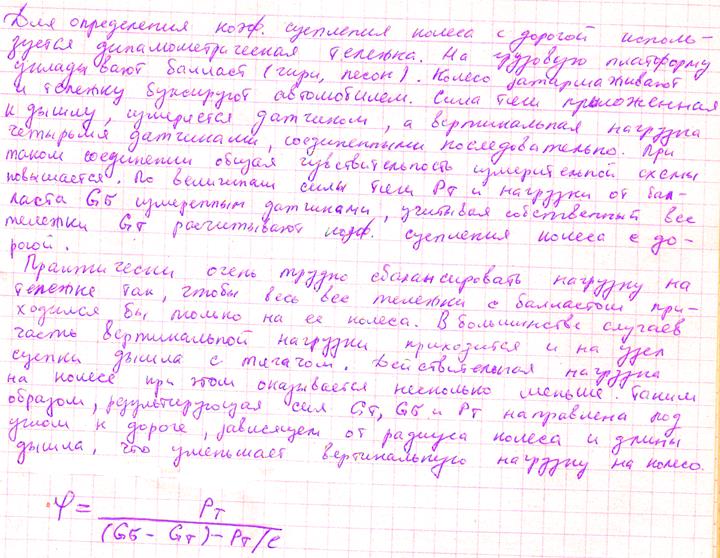 Для определения коэф. сцепления колеса с дорогой исполь-
зуется динамометрическая тележка. На грузовую платформу
укладывают балласт (гири, песок). Колесо затармаживают
и тележку буксируют автомобилем. Сила тяги приложенная
к дышлу, измеряется датчиком, а вертикальная нагрузка
четырьмя датчиками, соединенными последовательно. При
таком соединении общая чувствительность измерительной схемы
повышается. По величинам силы тяги Рт и нагрузки от бал-
ласта Gб измеренным датчиками, учитывая собственный вес
тележки Gт расчитывают коэф. сцепления колеса с до-
рогой.
Практически очень трудно сбалансировать нагрузку на
тележке так, чтобы весь вес тележки с балластом при-
ходился бы только на ее колеса. В большинстве случаев
часть вертикальной нагрузки приходится и на узел
сцепки дышла с тягачом. Действительная нагрузка
на колесе при этом оказывается несколько меньше. Таким
образом, результирующая сил Gт, Gб и Рт направлена под
углом к дороге, зависящем от радиуса колеса и длины
дышла, что уменьшает вертикальную нагрузку на колесо.
φ = Рт / (Gб - Gт) - Рт/е